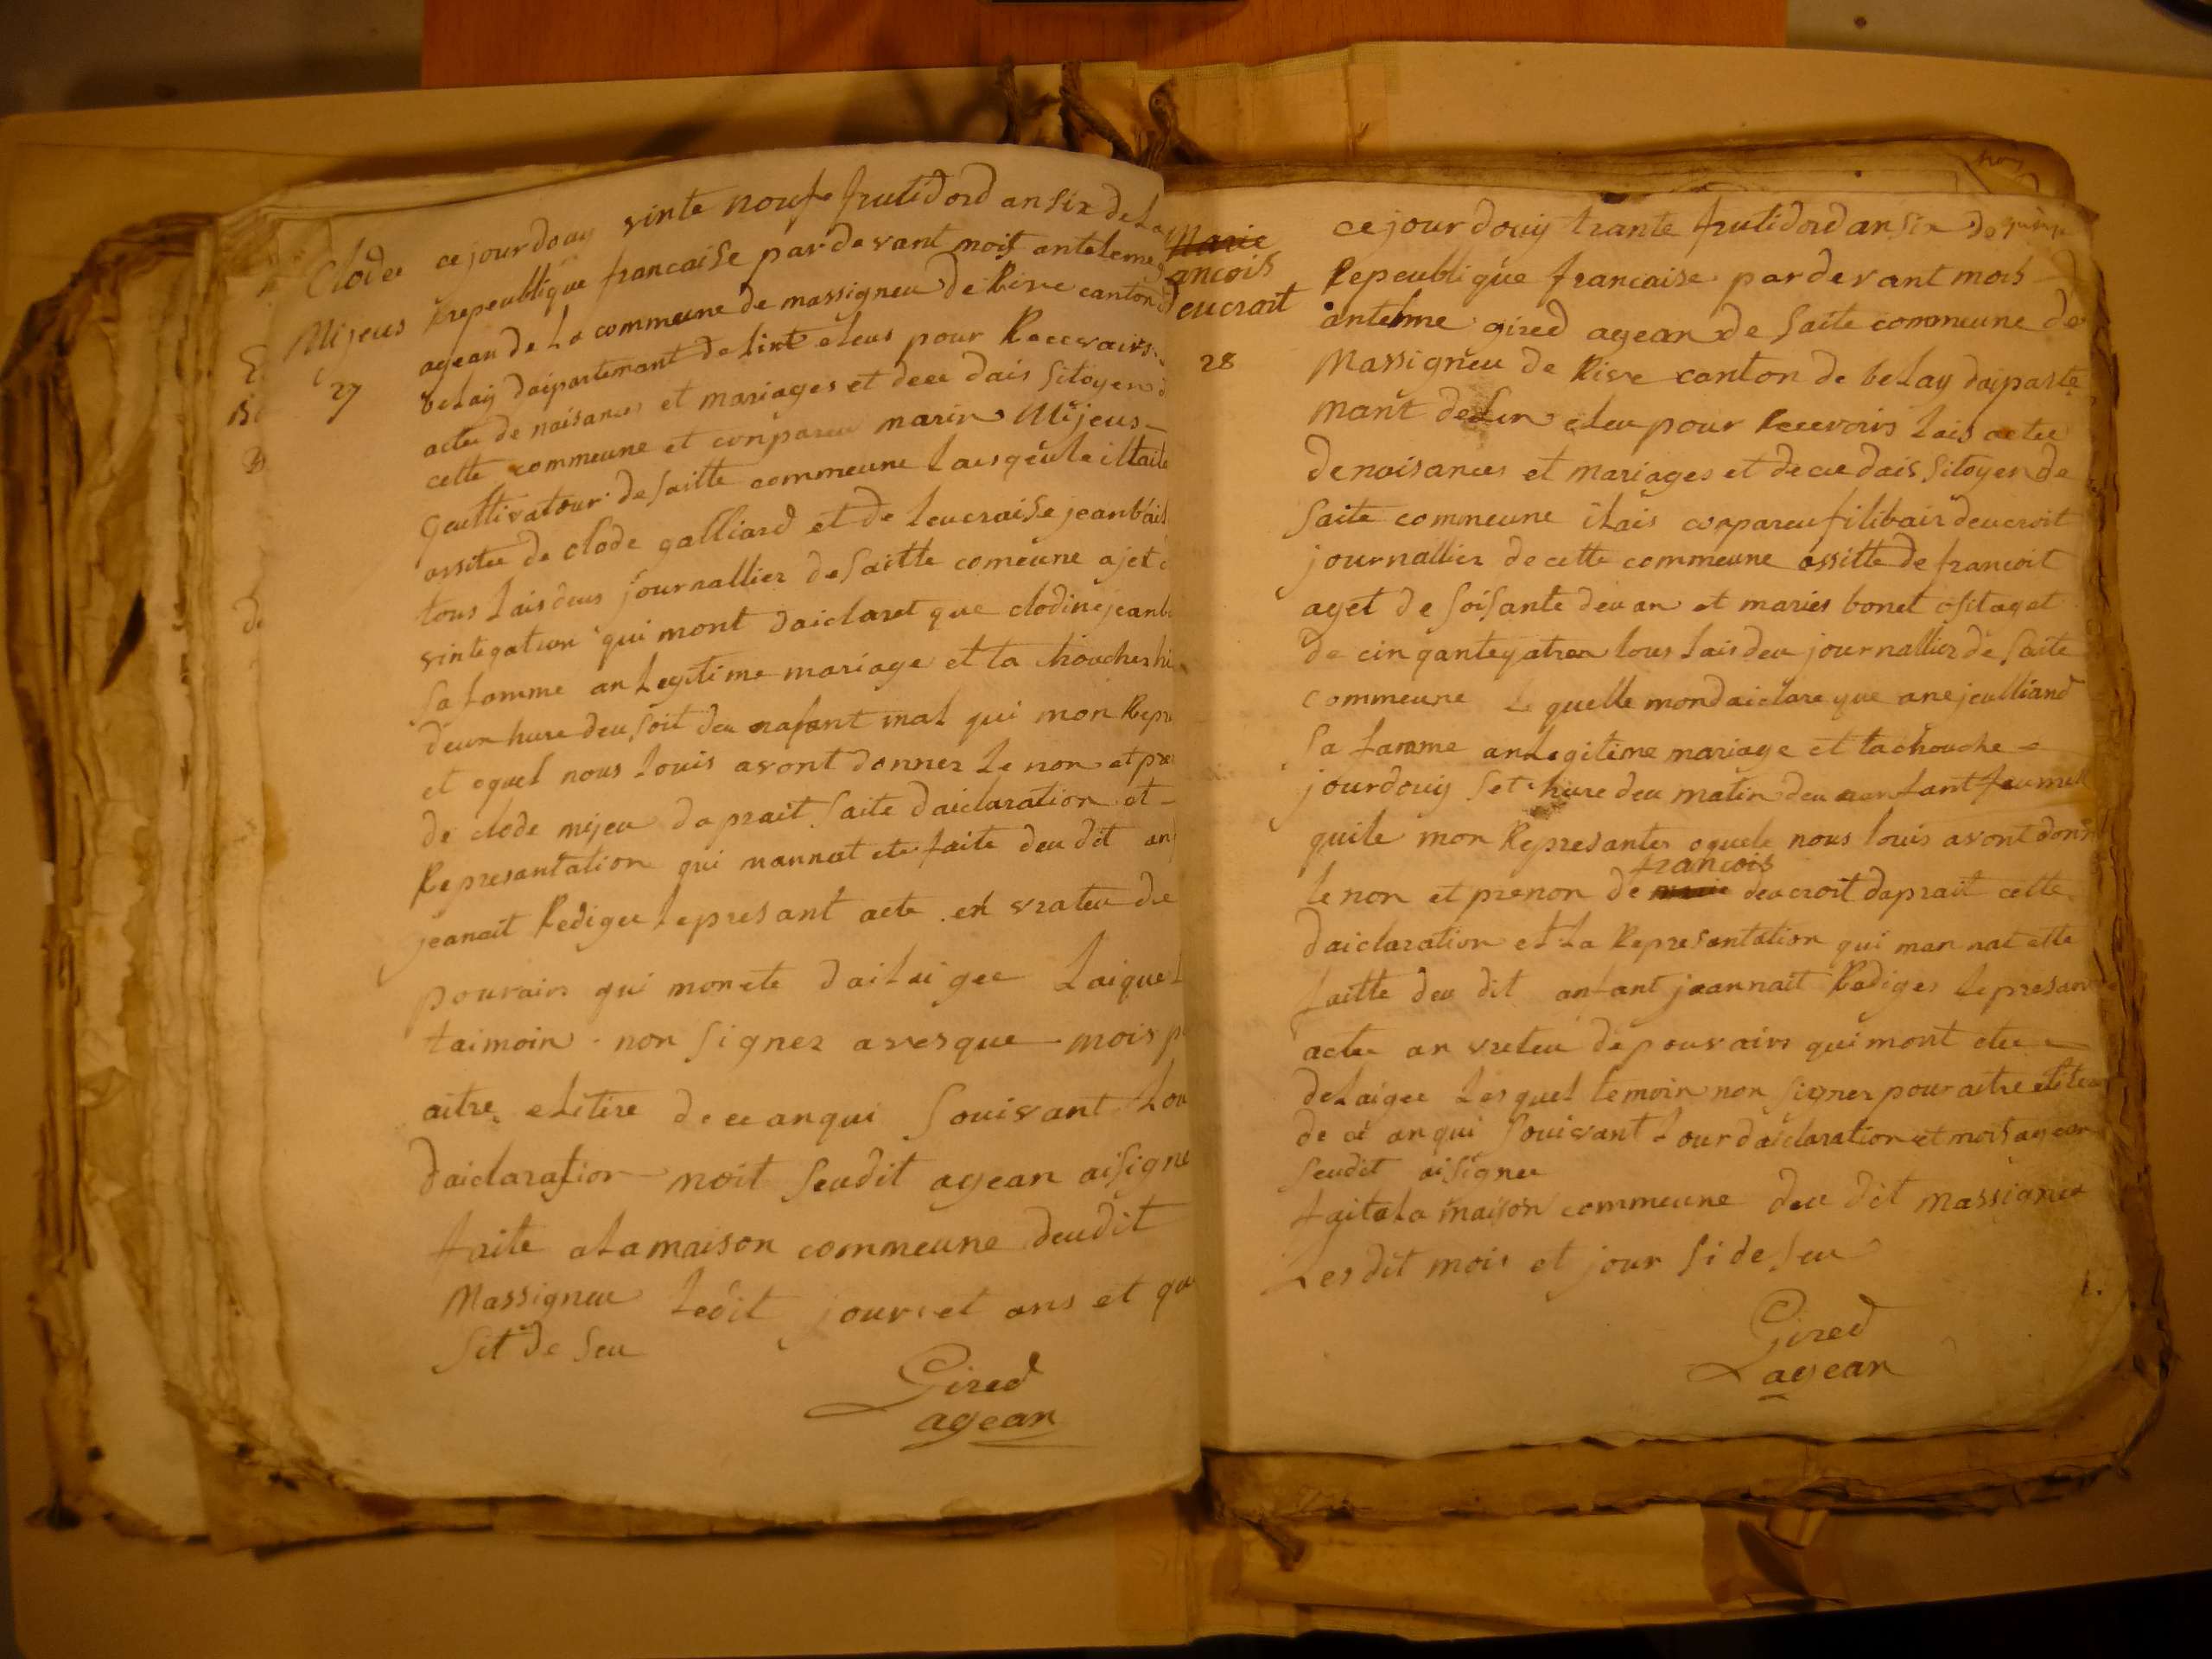 Clodee
Mijeus
27
ce jour doouy vinte noufe frutidord an six de La
repeublique francaise par devant mois anteleme
agean de La commeune de massigneu de Rive canton
belay daipartemant de Lint eleus pour Recevoirs
actee de naisances et mariages et decee dais sitoyen
cette commeune et conpareu marin Mijeus
qeultivatour de saitte commeune laisqeule ill
assitee de clode galliard et de leucraise jean
tous lais deus journallier de saitte comeune ajet
vintequatre qui mont daiclaret que clodine jeanb
sa famme an Legitime mariage et ta chouches hi
deux hure deu soit deu nafant mal qui mon Repr
et oquel nous Louis avont donner Le non et pre
de clode mijeu daprait saite daiclaration et
Represantation qui mannat ete faite deu dit an
jeanait Rediger Le presant acte en vrateu de
pouvairs qui mon ete dailaigee Laiquel
taimoin non signer avesque mois p
aitre elitire de ce anqui souivant Lou
daiclaration moit seudit agean aisigne
faite a La maison commeune deudit
Massigneu Ledit jour et ans et qu
sit de seu
Gired
agean
Marie
ancois
deucroit
28
ce jour douy trante frutidord an six de
Repeublique francaise par devant mois
antelme gired agean de saite commeune de
Massigneu de Rive canton de belay daiparte
mant de Lin eleu pour Recevoirs Lais actee
de naisances et mariages et decee dais sitoyen de
saite commeune ilais conpareu filibair deucroit
journallier de cette commeune assitte de francoit
aget de soisante deu an et maries bonet ositaget
de cinqante qatre tous Lais deu journallier de saite
commeune Lequelle mon daiclare que ane jeulliand
sa famme an Legitime mariage et ta chouche
jourdouy set hure deu matin deu nenfant feumel
quile mon Represanter oquele nous louis avont don
francois
le non et prenon de marie deucroit daprait cette
daiclaration et La Represantation qui man nat ette
faitte deu dit anfant jeannait Rediger Le presan
actee an vrateu de pouvairs qui mont etee
delaigee Lesquel temoin non signer pour aitre elitee
de ce anqui souivant Lour daiclaration et mois agean
seudit aisignee
faite a La maison commeune deu dit massigneu
Les dit mois et jour si de seu
Gired
agean